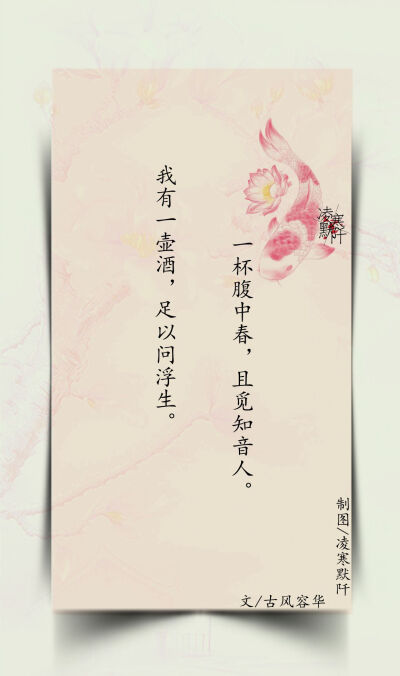 我有一壶酒，足以问浮生。
一杯腹中春，且觅知音人。
凌寒
默阡
制图/凌寒默阡
文/古风容华